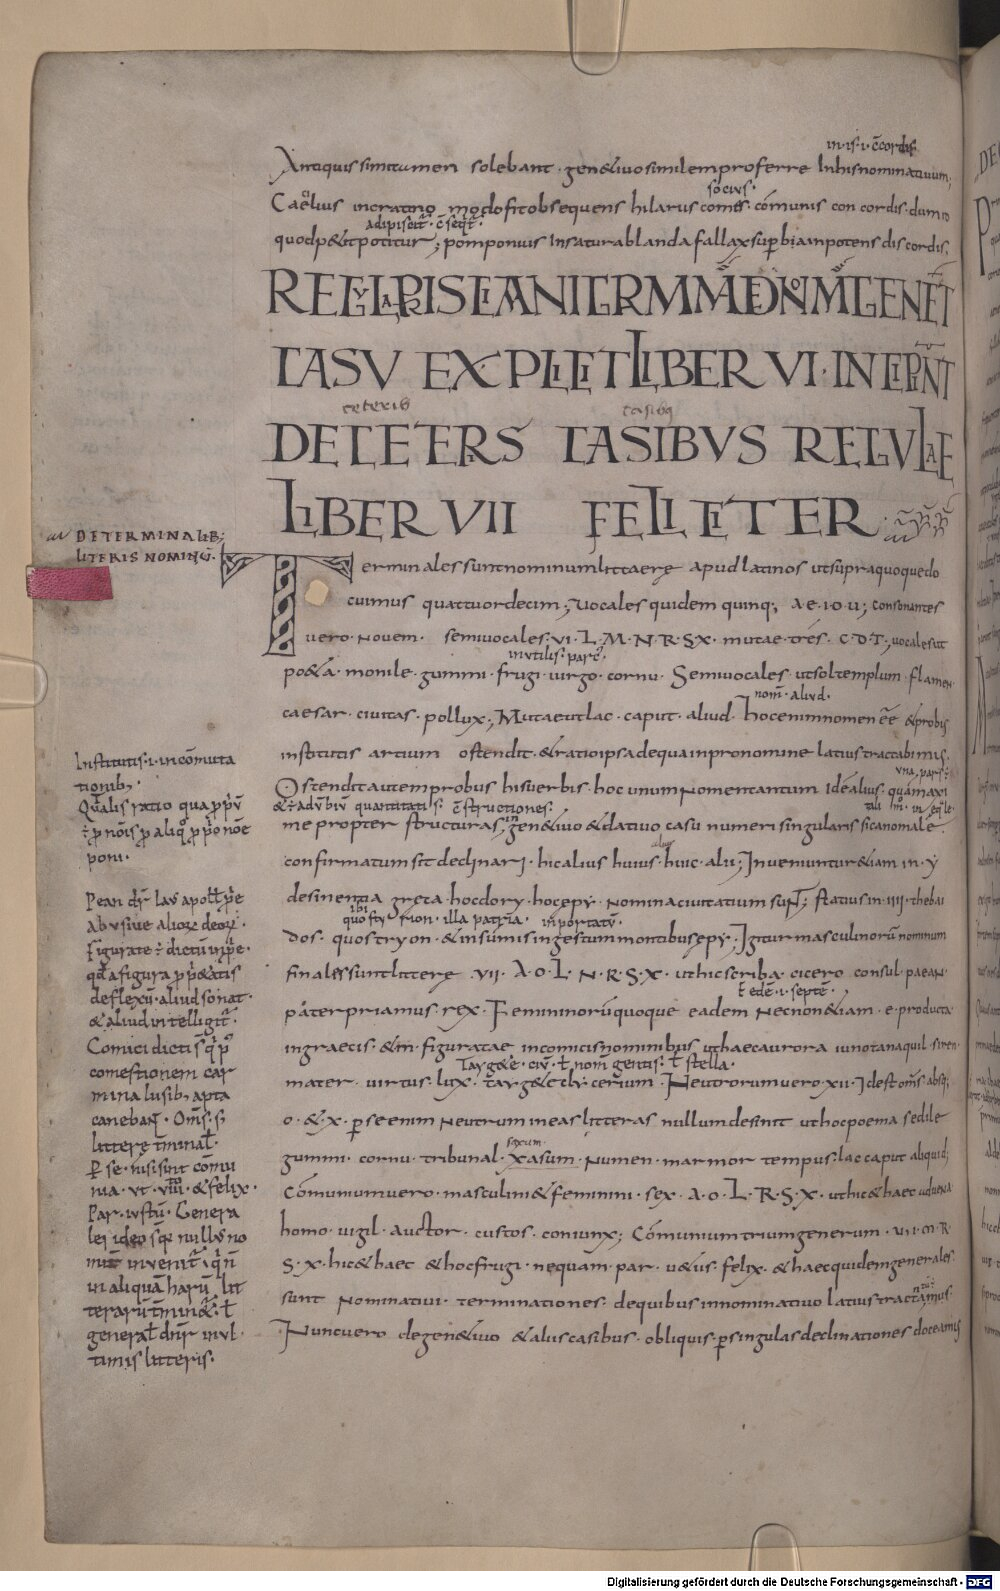 in·is·i· ccordis
Antiquissimi tamen solebant · gen&iuo similem proferre In his nominatiuum;
socius·
Caelius incratino modo fit obsequens hilarus comes· cōmunis concordis· dum id
adipiscit̄· c̄ seqt̄·
quod p&it potitur; pomponius In satura blanda fallax superbia inpotens discordis·
REGVLA PRISCIANI GRMM̄ DE NOM̄ GENET
CASV EXPLICIT LIBER VI· INCIPIVNT
ceteris casibus
DE CETERIS CASIBVS REGVLAE
LIBER VII FELICITER
DE TERMINALIB;
LITERIS NOMINŪ·
Terminales sunt nominum litterę apud latinos ut supra quoque do
cuimus quattuordecim; Vocales quidem quinq; A·E·I·O·U; consonantes
uero· Nouem· semiuocales·VI·L·M·N·R·S·X· mutae· tres· C·D·T; uocales ut
inutilis· parc̄·
po&a· monile· gummi· frugi· uirgo· cornu· Semiuocales· ut sol templum· flamen·
nom̄· aliud·
caesar· ciuitas· pollux; Muta eut lac· caput· aliud· hoc enim nomen eē &probis
institutis artium ostendit· &ratio ipsa de qua in pronomine latius tractabimus·
Ostendit autem probus his uerbis· hoc unum Nomen tantum Id e alius· quam maxi
&÷ adūbiū quantitatis: c̄structiones·
me propter structuras, in gen&iuo &datiuo casu numeri singularis sic anomale
confirmatum sit declinari· hic alius huius· huic· alii; Inueniuntur &iam in· y
desinentia greca· hoc dory· hoc epy· Nomina ciuitatium suNT; statius in· IIII· thebai
quo sty mon· illa patria· inportatū·
dos· quos tryon· &insumis ingestum montibus epy; Igitur masculinorū nominum
finales sunt litterę VII· A·O·L· N·R·S·X· ut hic scriba· cicero consul· paeaN·
ł edē· i· septē·
pater priamus· rex· Femininorū quoque eadem Necnon &iam· e· producta
in graecis· &in· figuratae in comicis nominibus ut haec aurora iuno tanaquil· siren·
Tayg&e· ciū· ł nom̄ gentis· ł stella·
mater· uirtus· lux· tayg&e &ly cerium· Neutrorum uero· XII· Id est om̄s· absq;
o·&·x· p̱ se enim Neutrum in eas litteras nullum desinit ut hoc poema sedile
gummi· cornu· tribunal· xasum· Numen· marmor tempus· lac caput aliquid;
Cōmunium uero· masculini &feminini· sex· A·O·L·R·S·X· ut hic &haec aduena·
homo· uigil· auctor· custos· coniunx; Cōmunium trium generum· VII·M·R·
S·X· hic &haec &hoc frugi· nequam· par· u&us· felix· &haec quidem generales
sunt Nominatiui· terminationes· de quibus in nominatiuo latius tractamus·
Nunc uero de gen&iuo &aliis casibus· obliquis· p̱ singulas declinationes doceamus
Institutis· i· in cōmuta
tionib;·
Qualis ratio qua pp̄ū
÷ p nōis p aliq° pp̄o nōe
poni·
Pean dr̄ laus apoll̄
abusiue alior̄ deor̄·
Figurate÷ dictū
qda figura
deflexū· aliud sonat·
&aliud intelligit̄·
Comici dicti s̄
comestionem car
mina lusib; apta
canebaN̄· Om̄s· s·
litterę t̄minal̄·
P̱ se· nisi sint cōmu
nia· ut· &felix·
Par· iustū· Genera
les ideo s̄ nullus no
inuenit̄· qn̄
in aliquā harū lit
terarū t̄min&· ł
general̄ dn̄r in ul·
timis litteris·
Digitalisierung gefördert durch die Deutsche Forschungsgemeinschaft - DFG